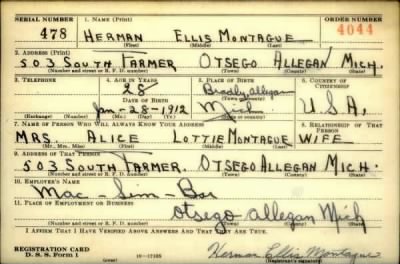 SERIAL NUMBER 1. NAME (Print) ORDER NUMBER
478 HERMAN ELLIS MONTAGUE 4044
(First) (Middle) (Last)
2. ADDRESS (Print)
503 SOUTH FARMER OTSEGO ALLEGAN MICH.
(Number and street or R. F. D. number) (Town) (County) (State)
3. TELEPHONE 4. AGE IN YEARS 5. PLACE OF BIRTH 6. COUNTRY OF CITIZENSHIP
28 Bradly allegan
DATE OF BIRTH (Town or county)
Jan-28-1912 Mich U.S.A.
(Exchange) (Number) (Mo.) (Day) (Yr.) (State or country)
7. NAME OF PERSON WHO WILL ALWAYS KNOW YOUR ADDRESS 8. RELATIONSHIP OF THAT PERSON
MRS. ALICE LOTTIE MONTAGUE WIFE
(Mr., Mrs., Miss) (First) (Middle) (Last)
9. ADDRESS OF THAT PERSON
503 SOUTH FARMER. OTSEGO ALLEGAN MICH.
(Number and street or R. F. D. number) (Town) (County) (State)
10. EMPLOYER'S NAME
Mac - Sim - Bar
11. PLACE OF EMPLOYMENT OR BUSINESS
Otsego allegan Mich
(Number and street or R. F. D. number) (Town) (County) (State)
I AFFIRM THAT I HAVE VERIFIED ABOVE ANSWERS AND THAT THEY ARE TRUE.
REGISTRATION CARD
D. S. S. Form 1 (over) Herman Ellis Montague
(Registrant's signature)